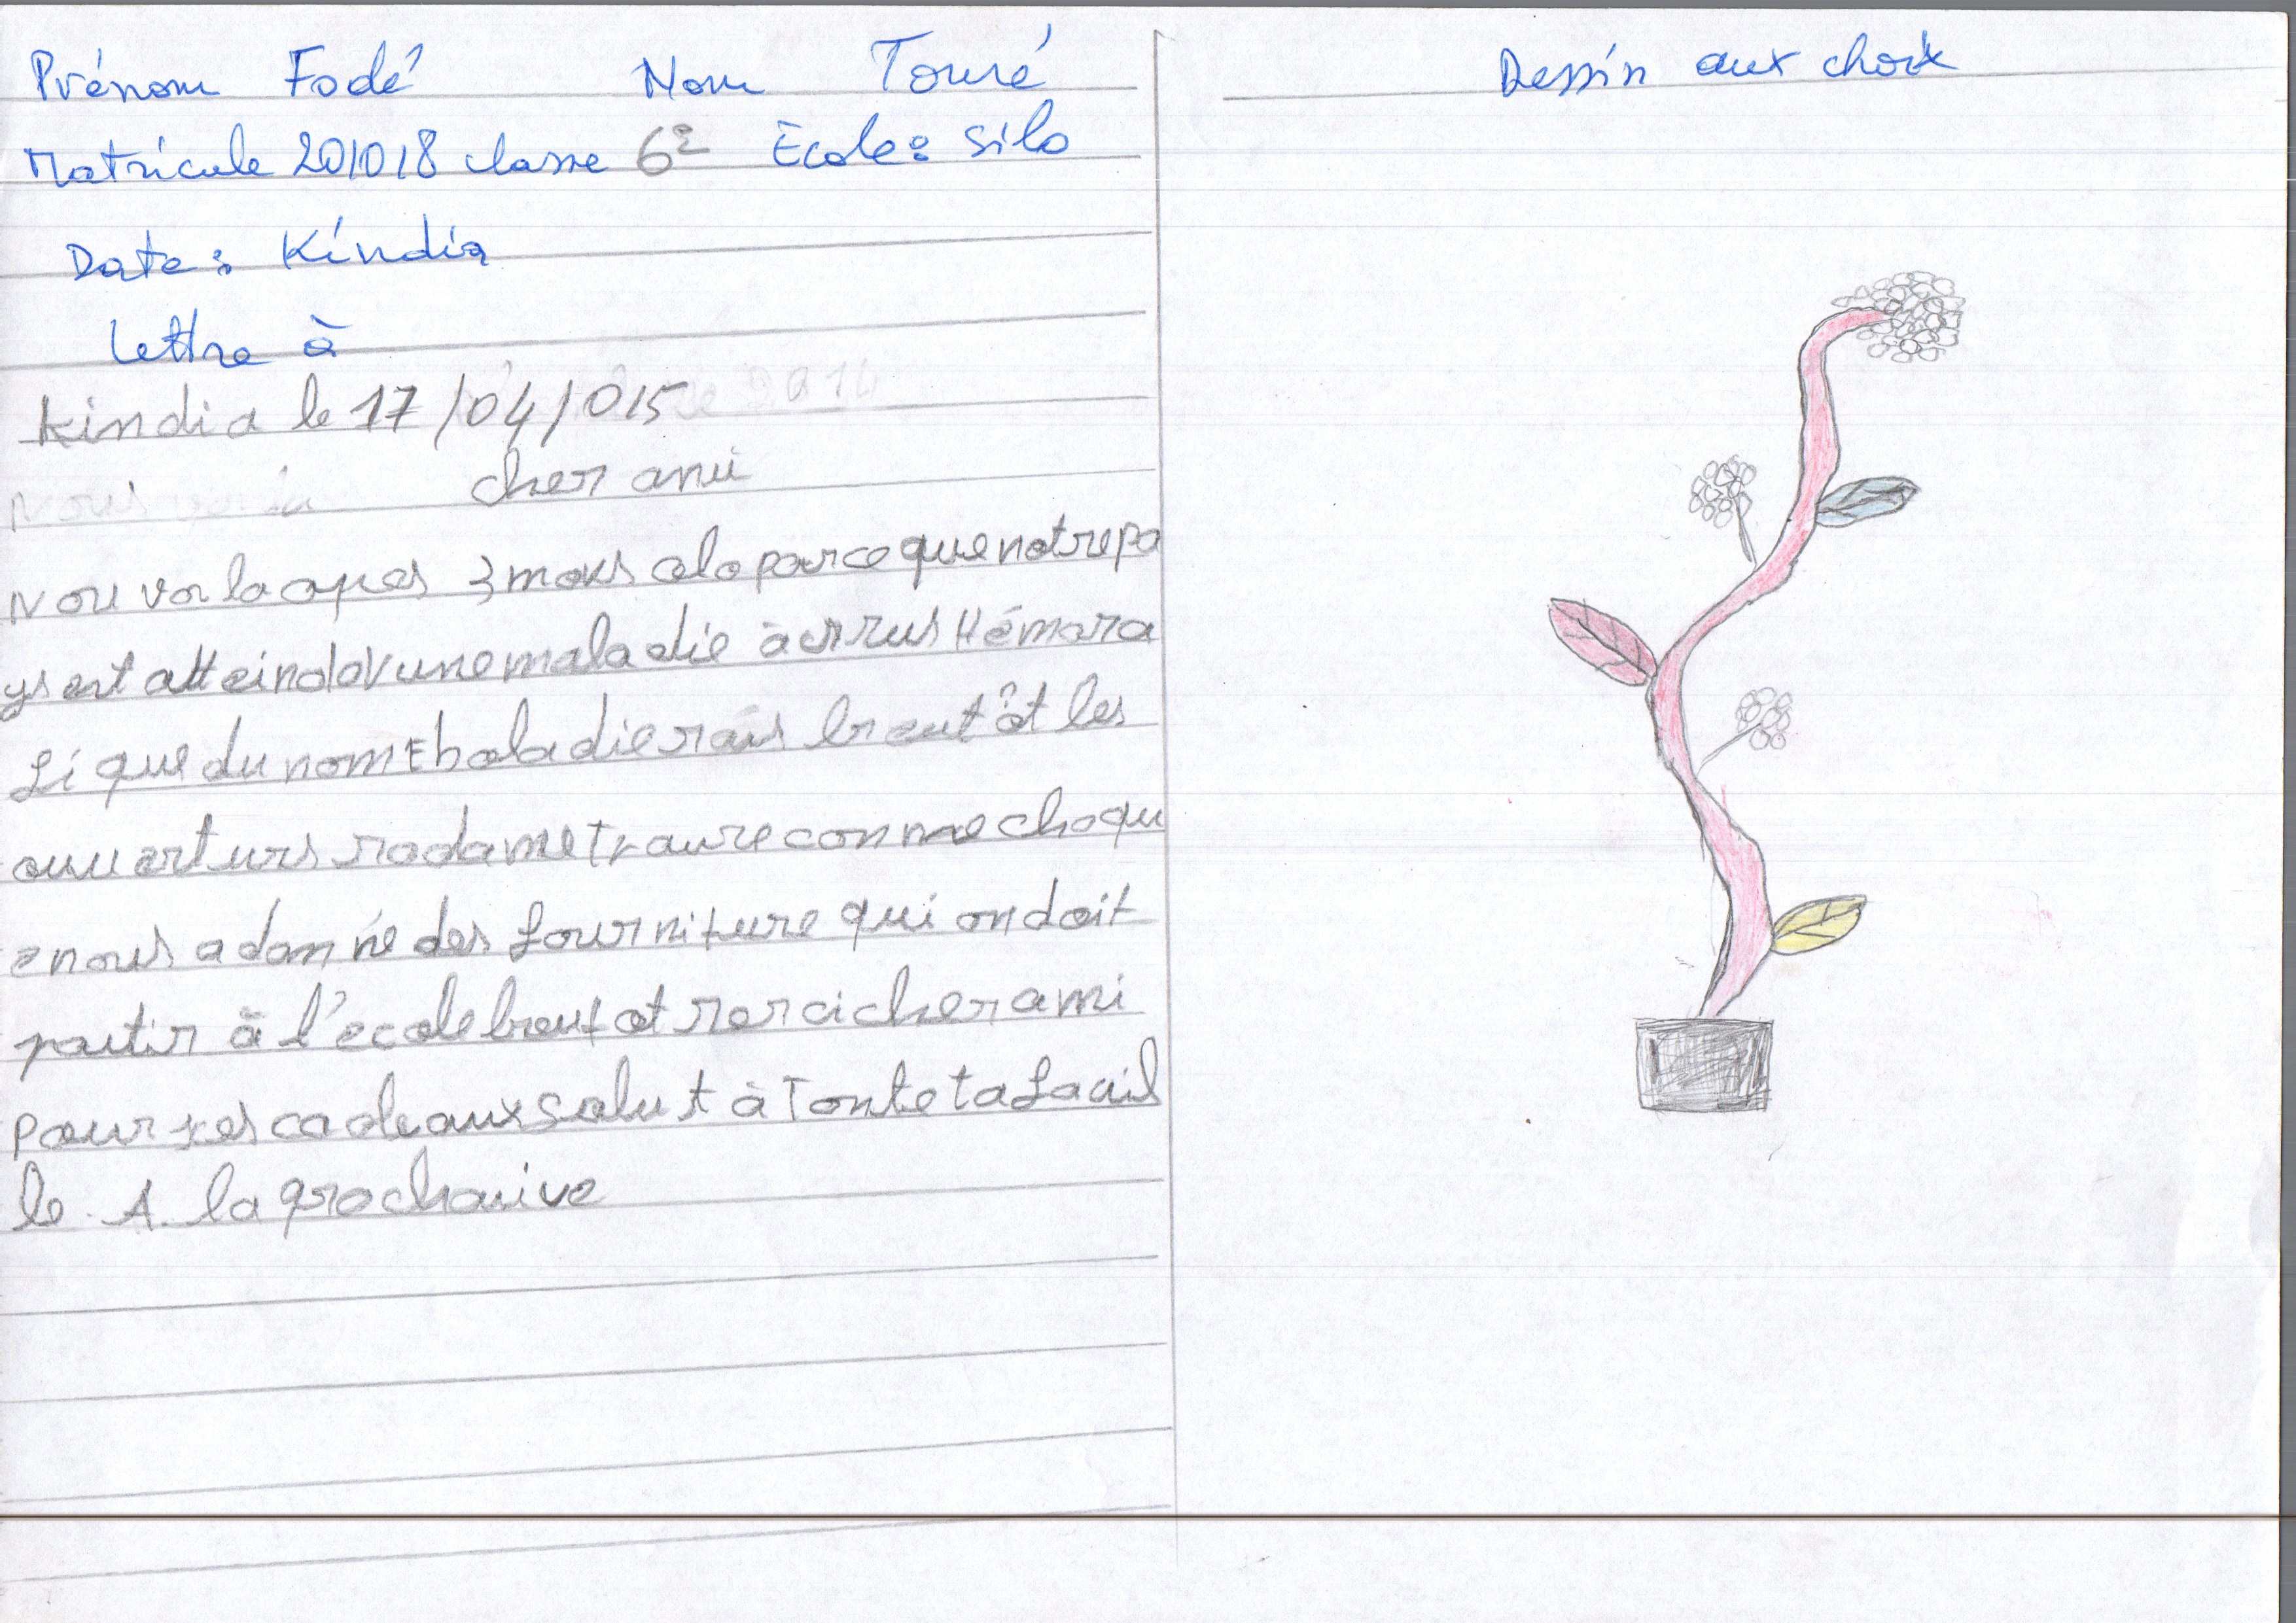 Prénom Fodé Nom Touré
Matricule 201018 classe 6e Ecole: Silo
Date: Kindia
Lettre à
Kindia le 17/04/015
cher ami
Nou voila apres 3 mois cela parce que notre pa
ys est atteind d'une maladie à virus Hémora
fi que du nom Ebola dierais bientôt les
ouverturs madame Traure comme chaqu
e nous a donné des fourniture qui on doit
partir à l'ecole bientot merci cher ami
pour tes cadeaux salut à Toute ta famil
le. A. la prochaine
Dessin aux choix